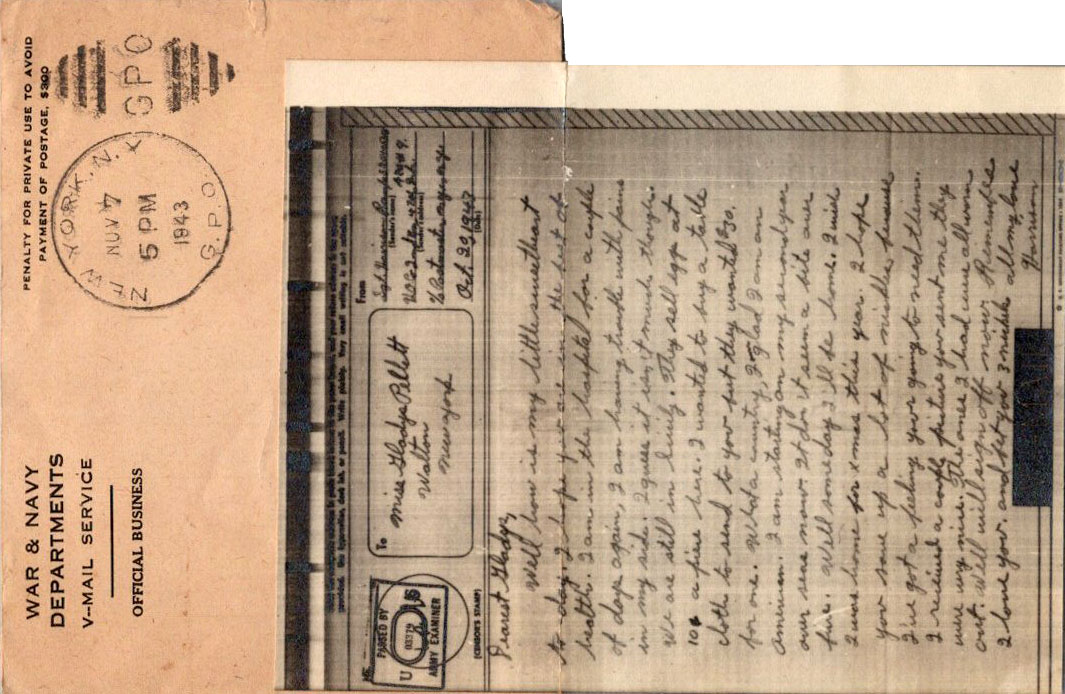 WAR & NAVY
DEPARTMENTS
V-MAIL SERVICE
OFFICIAL BUSINESS
PENALTY FOR PRIVATE USE TO AVOID
PAYMENT OF POSTAGE, $300
NEW YORK, N.Y.
NOV 7
5 PM
1943
G.P.O.
GPO
No.
PASSED BY
U S
03279
ARMY EXAMINER
(CENSOR'S STAMP)
To
Miss Gladys Pellett
Walton
New York
From
(Sender's name)
(Sender's address)
% Postmaster
Oct. 29, 1943
(Date)
Dearest Gladys,
Well how is my little sweetheart
to-day. I hope you are in the best of
health. I am in the hospital for a couple
of days again, I am having trouble with pains
in my side. I guess it isn't much though.
We are still in Sicily. They sell eggs at
10¢ a piece here. I wanted to buy a table
cloth to send to you but they wanted $30.
for one. What a country, I'm glad I am an
American. I am starting on my second year
over seas now. It don't seem a bit over
five. Well someday I'll be home. I wish
I was home for xmas this year. I hope
you save up a lot of nickles because
I've got a feeling you're going to need them.
I received a couple pictures you sent me they
were very nice. The ones I had were all worn
out. Well will sign off now. Remember
I love you. and bet you 3 nickels all my love
Harrison